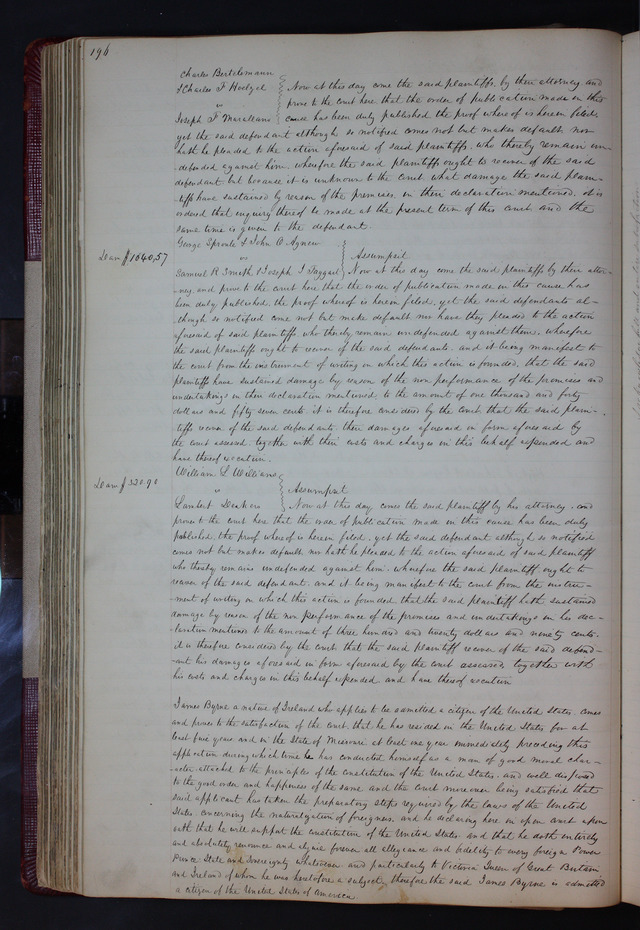 196
Charles Bertelsmann
& Charles F Hoelzel
vs
Joseph F
Now at this day come the said plaintiffs, by their attorney and
prove to the court here that the order of publication made in this
cause has been duly published the proof whereof is herein filed.
yet the said defendant although so notified comes not but makes default nor
hath he pleaded to the action aforesaid of said plaintiffs. who thereby remain un-
defended against him. wherefore the said plaintiff ought to recover of the said
defendant. but because it is unknown to the court what damage the said plain-
tiffs have sustained by reason of the premises, in their declaration mentioned, it is
ordered that inquiry thereof be made at the present term of this court and the
same time is given to the defendant.
George Sproule & John O Agnew
vs
Samuel R Smith & Joseph I Taggart
Assumpsit
Dam $1040,57
Now at this day come the said plaintiffs by their attor-
-ney. and prove to the court here that the order of publication made in this cause has
been duly published. the proof whereof is herein filed, yet the said defendants al-
though so notified come not but make default. nor have they pleaded to the action
aforesaid of said plaintiffs who thereby remain undefended against them. wherefore
the said plaintiffs ought to recover of the said defendants. and it being manifest to
the court from the instrument of writing on which this action is founded. that the said
plaintiffs have sustained damage by reason of the non performance of the promises and
undertakings in their declaration mentioned to the amount of one thousand and forty
dollars and fifty seven cents. it is therefore considered by the court that the said plain-
tiffs recover of the said defendants. their damages aforesaid in form aforesaid by
the court assessed together with their costs and charges in this behalf expended and
have thereof execution.
William L Williams
vs
Lambert
Assumpsit
Dam $320.90
Now at this day comes the said plaintiff by his attorney. and
proves to the court here that the order of publication made in this cause has been duly
published. the proof whereof is herein filed, yet the said defendant although so notified
comes not but makes default. nor hath he pleaded to the action aforesaid of said plaintiff
who thereby remains undefended against him. wherefore the said plaintiff ought to
recover of the said defendant. and it being manifest to the court from the instru-
ment of writing on which this action is founded that the said plaintiff hath sustained
damage by reason of the non performance of the promises and undertakings in his dec-
laration mentioned to the amount of three hundred and twenty dollars and ninety cents.
it is therefore considered by the court that the said plaintiff recover of the said defend-
ant his damages aforesaid in form aforesaid by the court assessed together with
his costs and charges in this behalf expended and have thereof execution
James Byrne a native of Ireland who applies to be admitted a citizen of the United States. comes
and proves to the satisfaction of the court. that he has resided in the United States for at
least five years and in the State of Missouri at least one year immediately preceding this
application during which time he has conducted himself as a man of good moral char-
acter attached to the principles of the constitution of the United States. and well disposed
to the good order and happiness of the same and the court moreover being satisfied that
said applicant has taken the preparatory steps required by the laws of the United
States concerning the naturalization of foreigners, and he declaring here in open court upon
oath that he will support the constitution of the United States. and that he doth entirely
and absolutely renounce and abjure forever all allegiance and fidelity to every foreign Power
Prince State and Sovereignty whatsoever and particularly to Victoria Queen of Great Britain
and Ireland of whom he was heretofore a subject, therefore the said James Byrne is admitted
a citizen of the United States of America